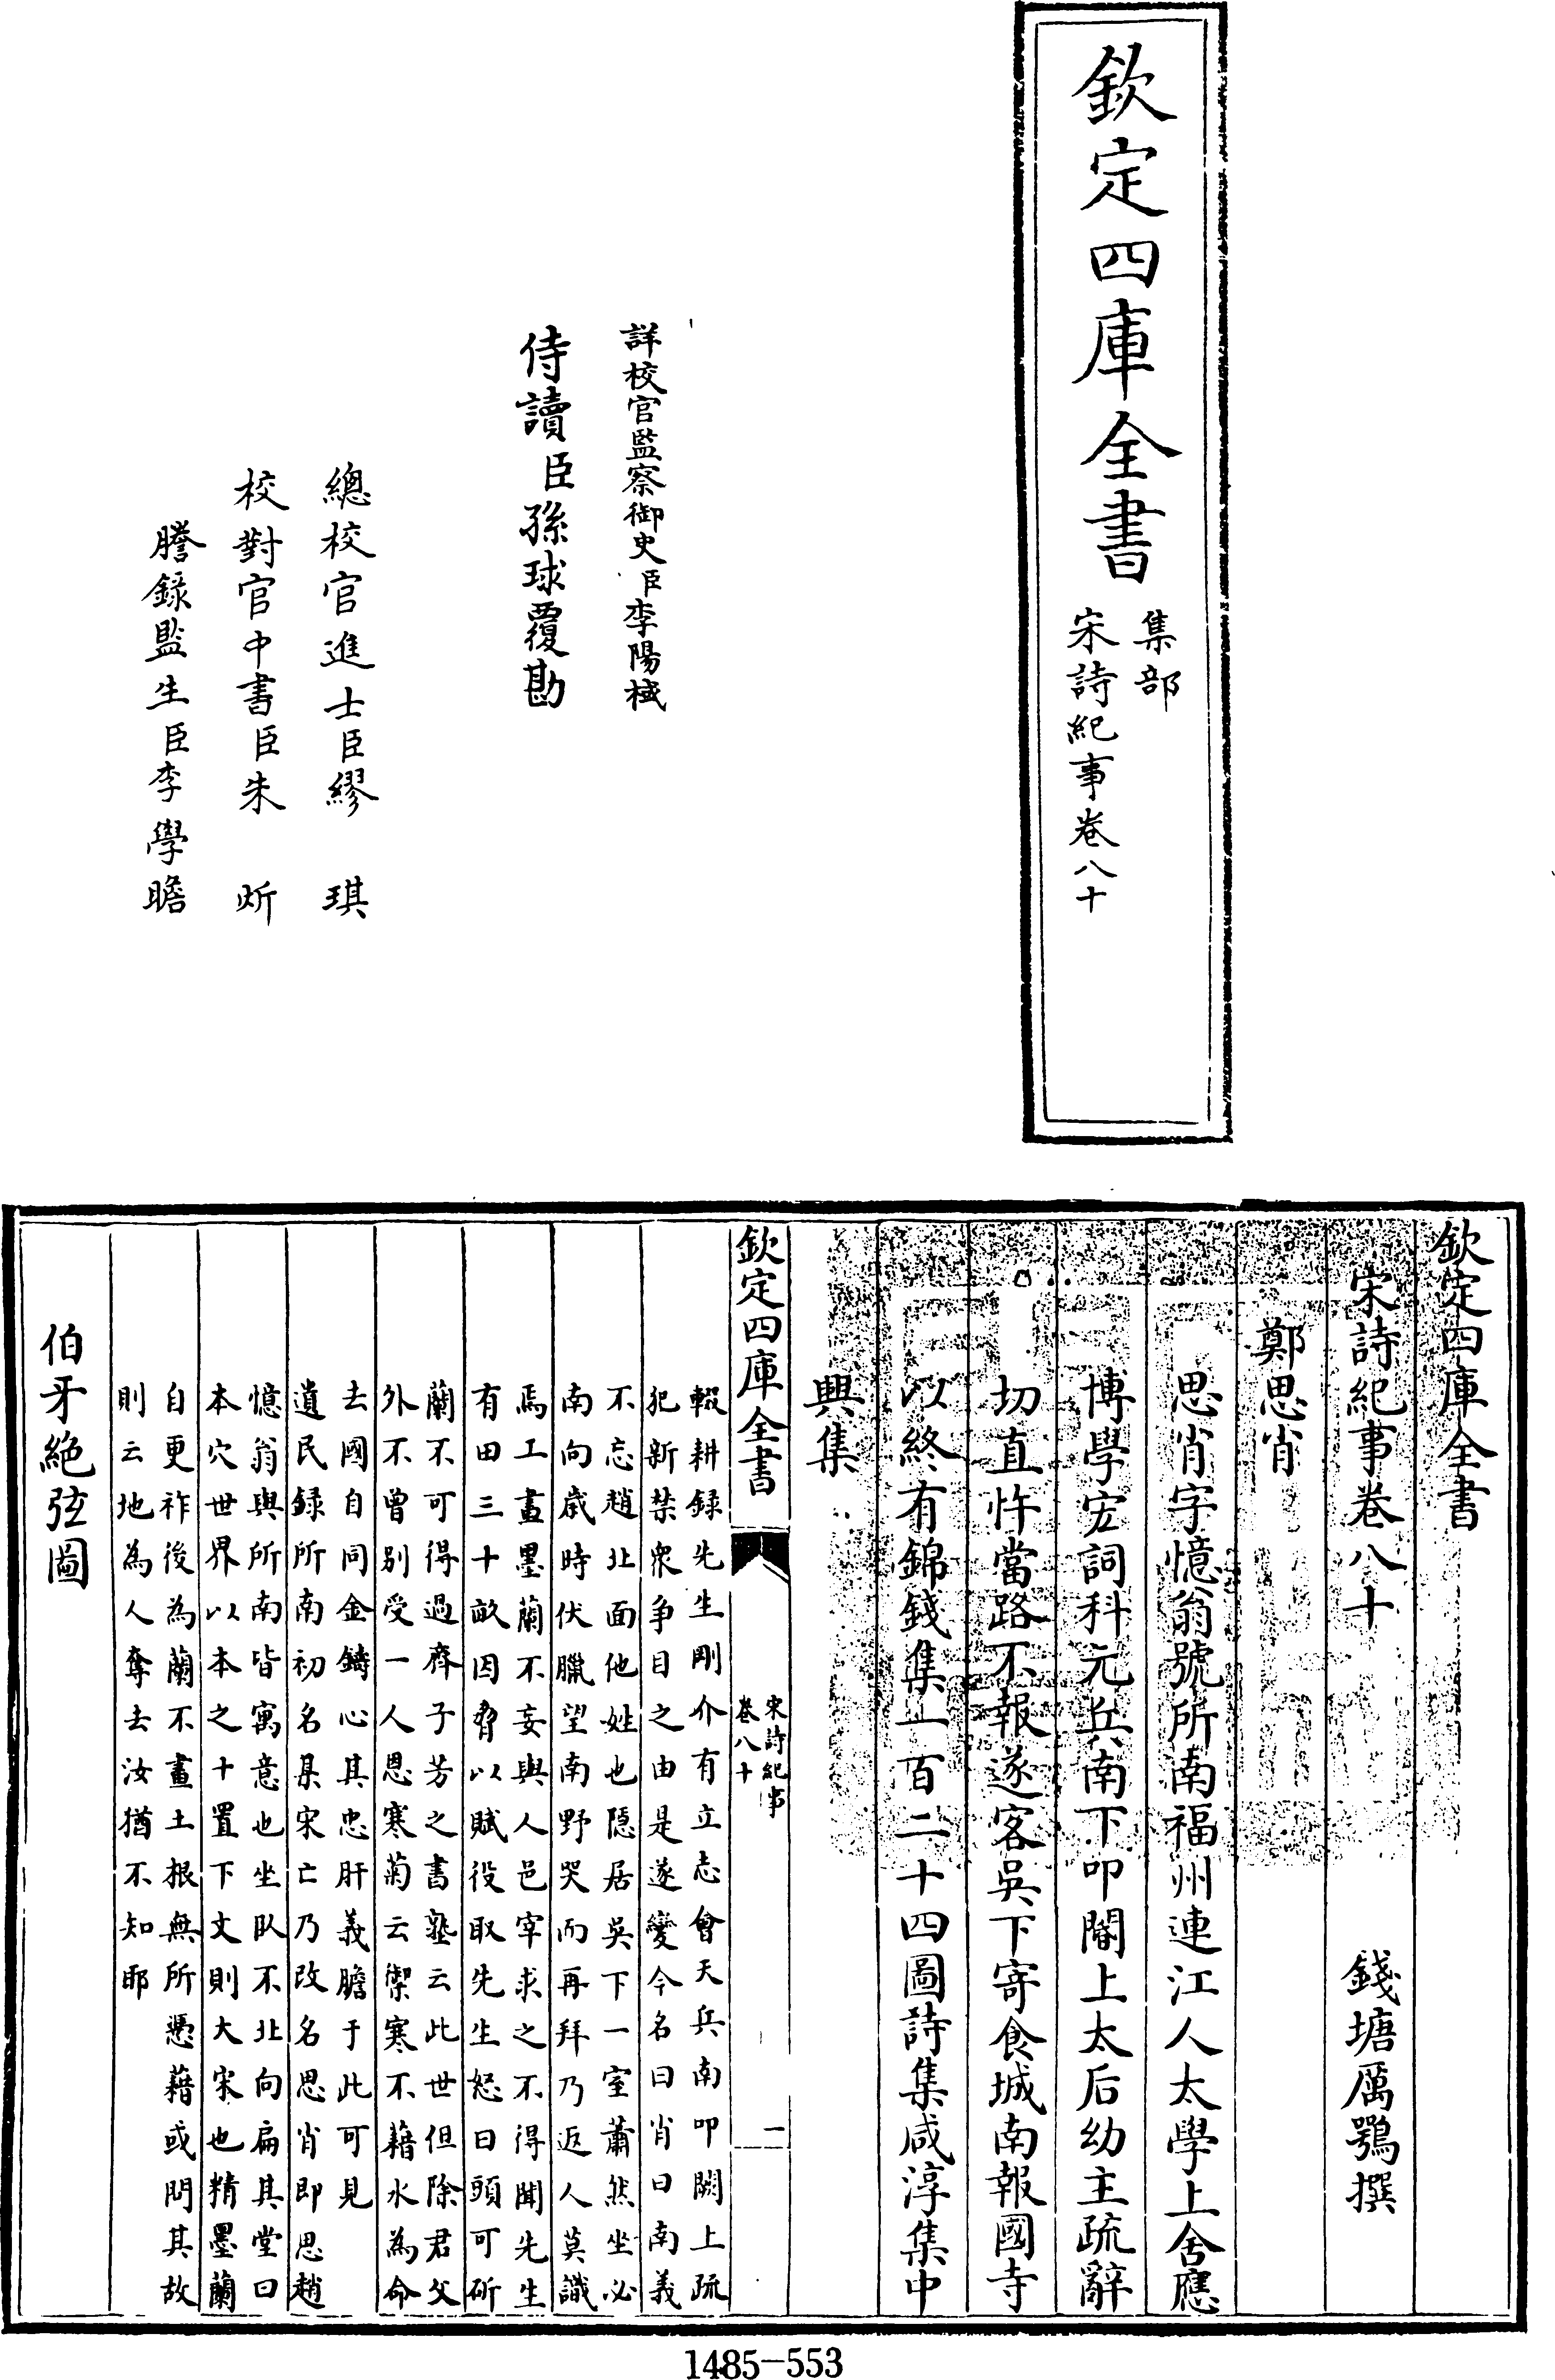 欽定四庫全書
集部
宋詩紀事卷八十
詳校官監察御史臣李陽棫
侍讀臣孫球覆勘
總校官進士臣繆琪
校對官中書臣朱炘
謄錄監生臣李學瞻
欽定四庫全書
宋詩紀事卷八十
錢塘厲鶚撰
鄭思肖
思肖字憶翁號所南福州連江人太學上舍應
博學宏詞科元兵南下叩閽上太后幼主疏辭
切直忤當路不報遂客吳下寄食城南報國寺
以終有錦錢集一百二十四圖詩集咸淳集中
興集
欽定四庫全書
宋詩紀事
卷八十
一
輟耕録先生剛介有立志會天兵南叩闕上疏
犯新禁衆争目之由是遂變今名曰肖曰南義
不忘趙北面他姓也隱居吳下一室蕭然坐必
南向歲時伏臘望南野哭而再拜乃返人莫識
焉工畫墨蘭不妄與人邑宰求之不得聞先生
有田三十畝因脅以賦役取先生怒曰頭可斫
蘭不可得過齊子芳之書塾云此世但除君父
外不曾别受一人恩寒菊云禦寒不藉水為命
去國自同金鑄心其忠肝義膽于此可見
遺民録所南初名某宋亡乃改名思肖即思趙
憶翁與所南皆寓意也坐臥不北向扁其堂曰
本穴世界以本之十置下文則大宋也精墨蘭
自更祚後為蘭不畫土根無所憑藉或問其故
則云地為人奪去汝猶不知耶
伯牙絶弦圖
1485-553